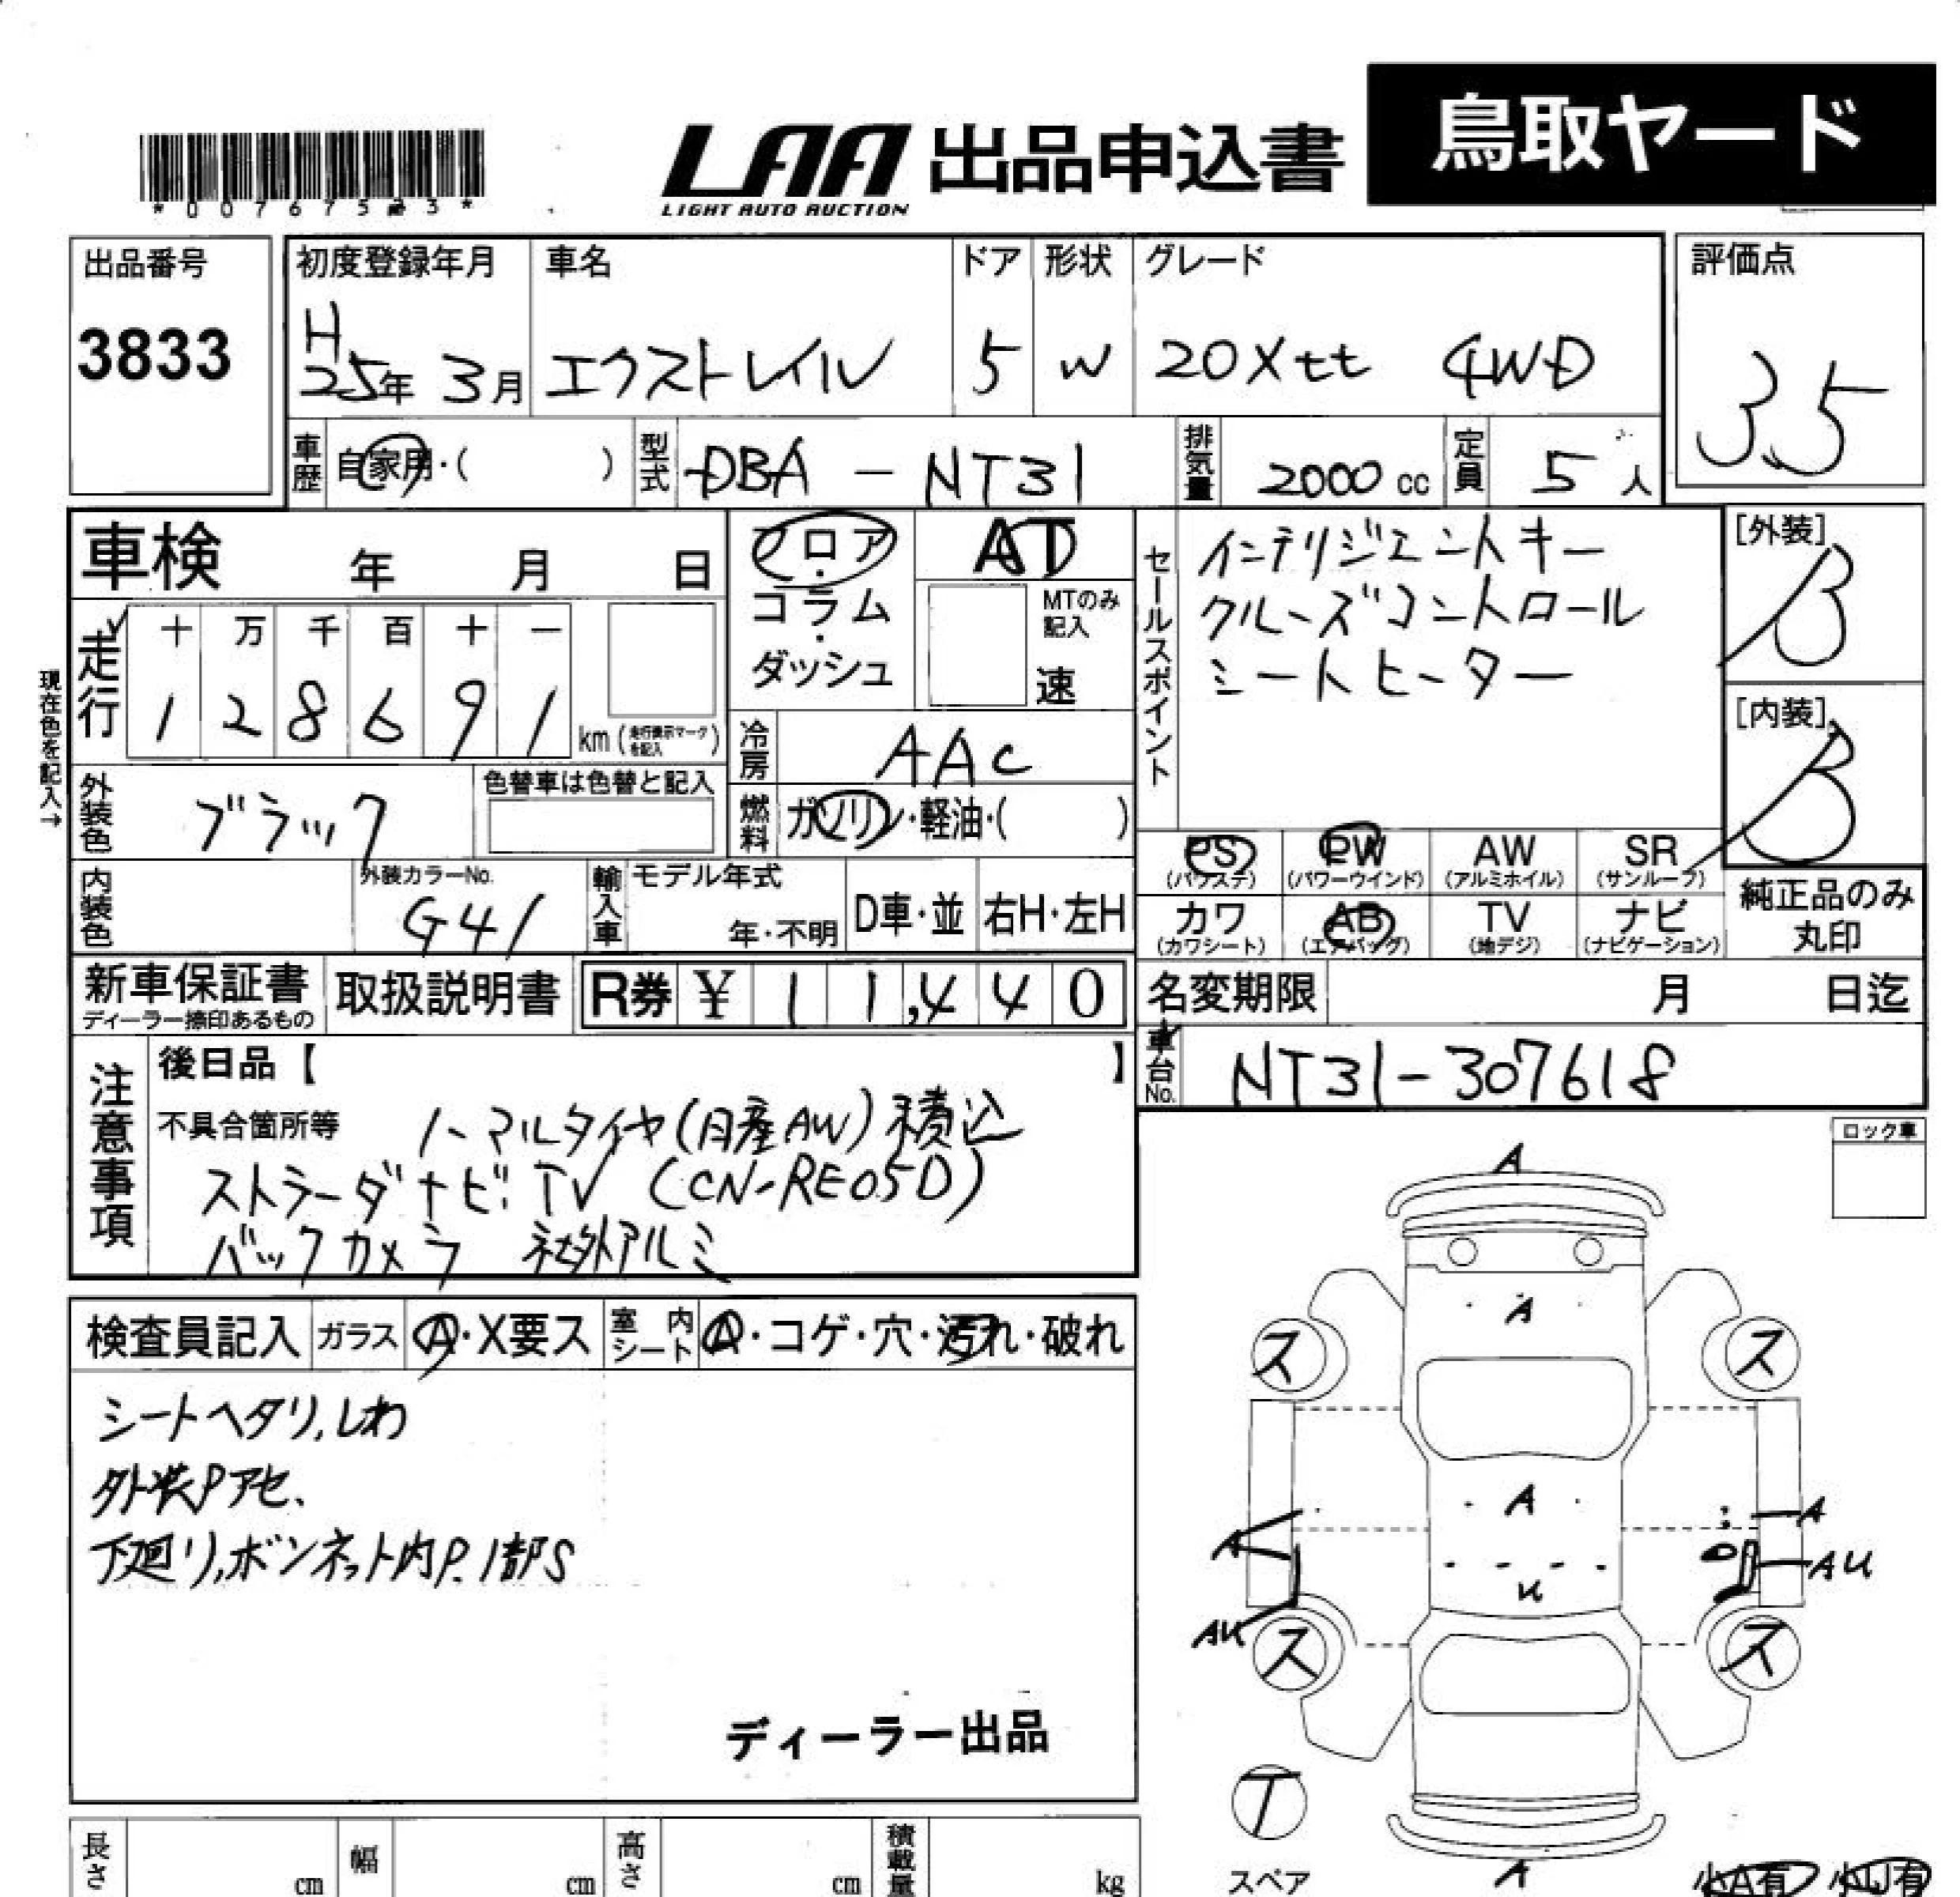 LAA 出品申込書 鳥取ヤード
LIGHT AUTO AUCTION
出品番号 初度登録年月 車名 ドア 形状 グレード 評価点
3833 H25年 3月 エクストレイル 5 W 20Xtt 4WD 3.5
車歴 自家用・( ) 型式 DBA - NT31 排気量 2000 cc 定員 5 人
車検 年 月 日 フロア・コラム・ダッシュ AT
MTのみ記入 速
セールスポイント
インテリジェントキー
クルーズコントロール
シートヒーター
[外装] B
[内装] B
現在色を記入→
走行 十 万 千 百 十 一
1 2 8 6 9 1 km (走行表示マークを記入)
冷房 AAC
外装色 ブラック 色替車は色替と記入
燃料 ガソリン・軽油・( )
PS (パワステ) PW (パワーウインド) AW (アルミホイル) SR (サンルーフ)
カワ (カワシート) AB (エアバッグ) TV (地デジ) ナビ (ナビゲーション)
純正品のみ丸印
内装色 外装カラーNo. G41 輸入車 モデル年式 年・不明 D車・並 右H・左H
新車保証書 ディーラー捺印あるもの 取扱説明書 R券 ¥ 11,440
名変期限 月 日迄
車台No. NT31-307618
注意事項
後日品【 】
不具合箇所等 ノーマルタイヤ(日産AW)積込
ストラーダナビ.TV (CN-RE05D)
バックカメラ 社外アルミ
ロック車
検査員記入 ガラス A・X要ス 室内シート A・コゲ・穴・汚れ・破れ
シートヘタリ,しわ
外装Pアセ、
下廻り,ボンネット内P.1部S
ディーラー出品
A
A
ス ス
A
A A
U AU
AU
ス ス
T
スペア
A
小A有 小U有
長さ cm 幅 cm 高さ cm 積載量 kg